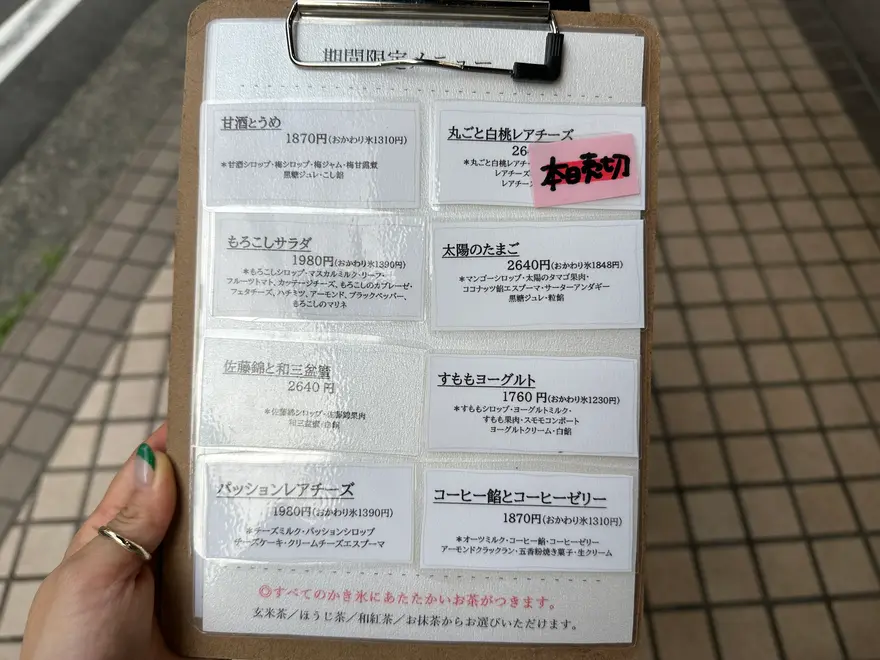 期間限定メニュー
甘酒とうめ
1870円(おかわり氷1310円)
*甘酒シロップ・梅シロップ・梅ジャム・梅甘露煮
黒糖ジュレ・こし餡
丸ごと白桃レアチーズ
26
*丸ごと白桃レアチ
レアチーズ
レアチー
本日売切
もろこしサラダ
1980円(おかわり氷1390円)
*もろこしシロップ・マスカルミルク・リーフ・
フルーツトマト、カッテージチーズ、もろこしのカプレーゼ・
フェタチーズ、ハチミツ、アーモンド、ブラックペッパー、
もろこしのマリネ
太陽のたまご
2640円(おかわり氷1848円)
*マンゴーシロップ・太陽のタマゴ果肉・
ココナッツ餡エスプーマ・サーターアンダギー
黒糖ジュレ・粒餡
佐藤錦と和三盆蜜
2640円
*佐藤錦シロップ・佐藤錦果肉
和三盆蜜・白餡
すももヨーグルト
1760円(おかわり氷1230円)
*すももシロップ・ヨーグルトミルク・
すもも果肉・スモモコンポート
ヨーグルトクリーム・白餡
パッションレアチーズ
1980円(おかわり氷1390円)
*チーズミルク・パッションシロップ
チーズケーキ・クリームチーズエスプーマ
コーヒー餡とコーヒーゼリー
1870円(おかわり氷1310円)
*オーツミルク・コーヒー餡・コーヒーゼリー
アーモンドクラックラン・五香粉焼き菓子・生クリーム
◎すべてのかき氷にあたたかいお茶がつきます。
玄米茶/ほうじ茶/和紅茶/お抹茶からお選びいただけます。